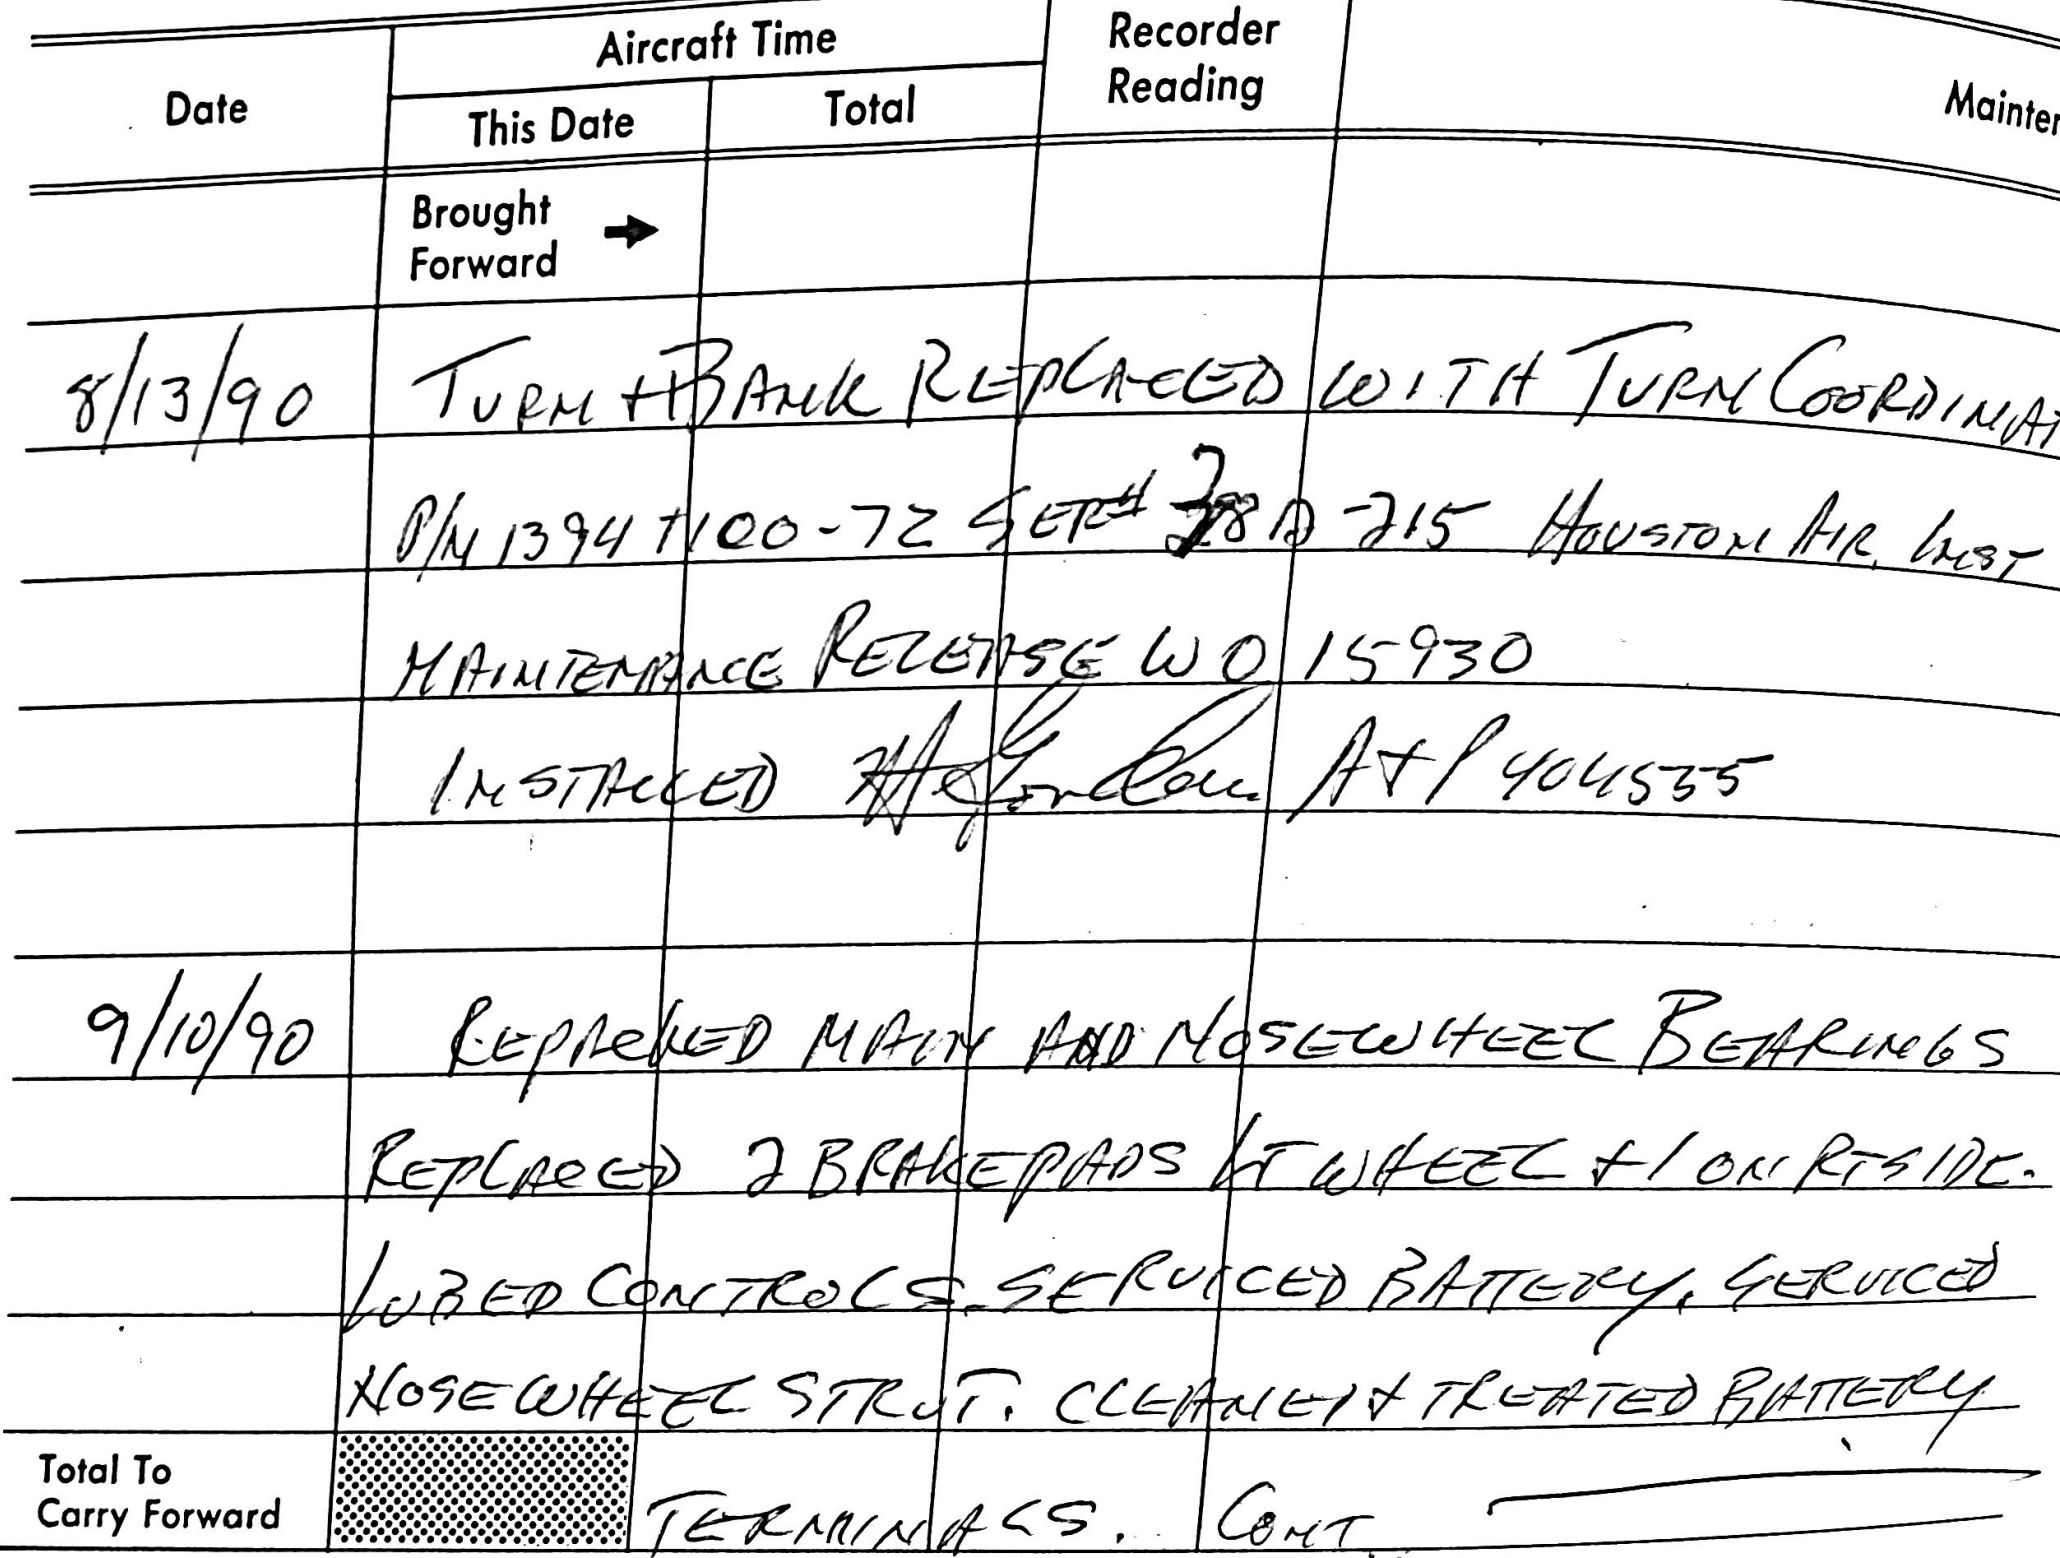 Date
Aircraft Time
This Date
Total
Recorder Reading
Mainten
Brought Forward →
8/13/90 TURN + BANK REPLACED WITH TURN COORDINAT
P/N 1394T100-7Z SER# 28A-215 HOUSTON AIR. INST
MAINTENANCE RELEASE WO 15930
INSTALLED A+P 404535
9/10/90 REPACKED MAIN AND NOSEWHEEL BEARINGS
REPLACED 2 BRAKEPADS LT WHEEL + 1 ON RT SIDE.
LUBED CONTROLS. SERVICED BATTERY. SERVICED
NOSEWHEEL STRUT. CLEANED + TREATED BATTERY
Total To Carry Forward
TERMINALS. CONT